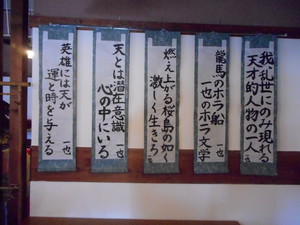 我、乱世にのみ現れる
天才的人物の一人
龍馬のホラ船
一也のホラ文学
燃え上がる桜島の如く
激しく生きろ
一也
天とは潜在意識
心の中にいる
一也
英雄には天が
運と時を与える
一也